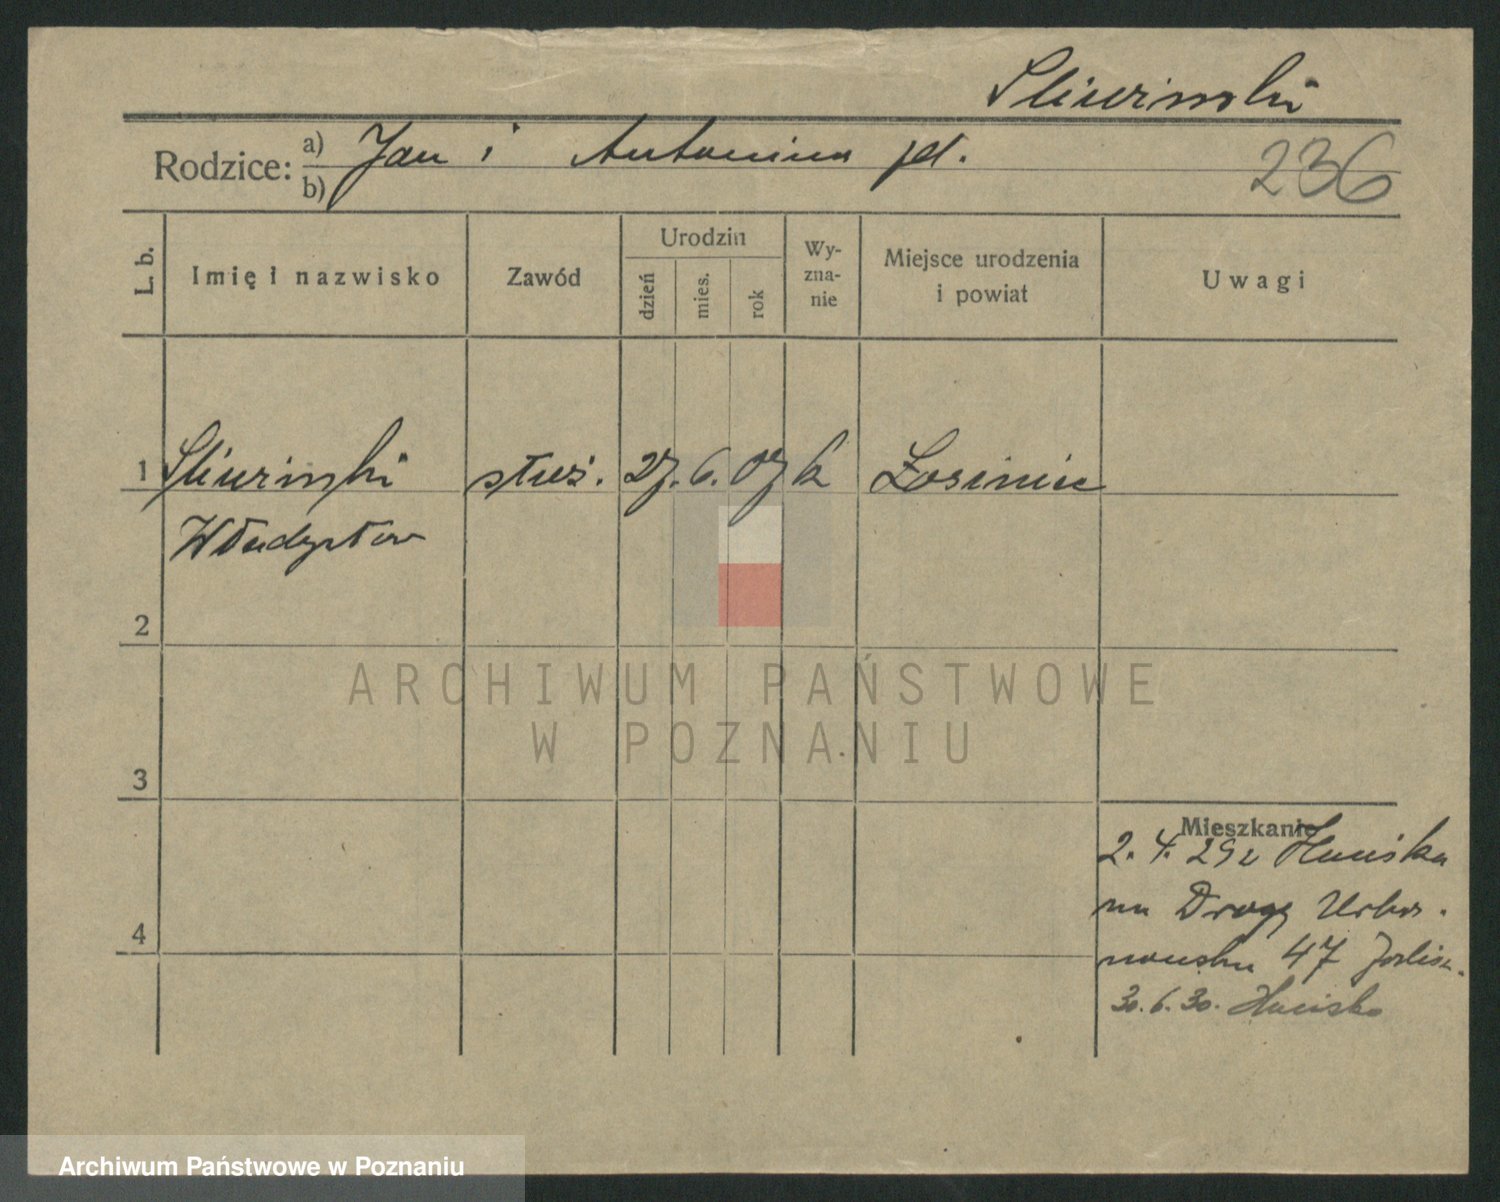 Sliwinski
Rodzice: a) Jan i Antonina
b)
236
L. b.
Imię i nazwisko
Zawód
Urodzin
dzień
mies.
rok
Wy-
zna-
nie
Miejsce urodzenia
i powiat
Uwagi
1 Sliwinski służ. 27. 6. 07 k Łosiniec
Władysław
2
3
ARCHIWUM PAŃSTWOWE
W POZNANIU
Mieszkanie
2. 4. 29 z
na Drogę Urba.
nowska 47
4
30. 6. 30.
Archiwum Państwowe w Poznaniu